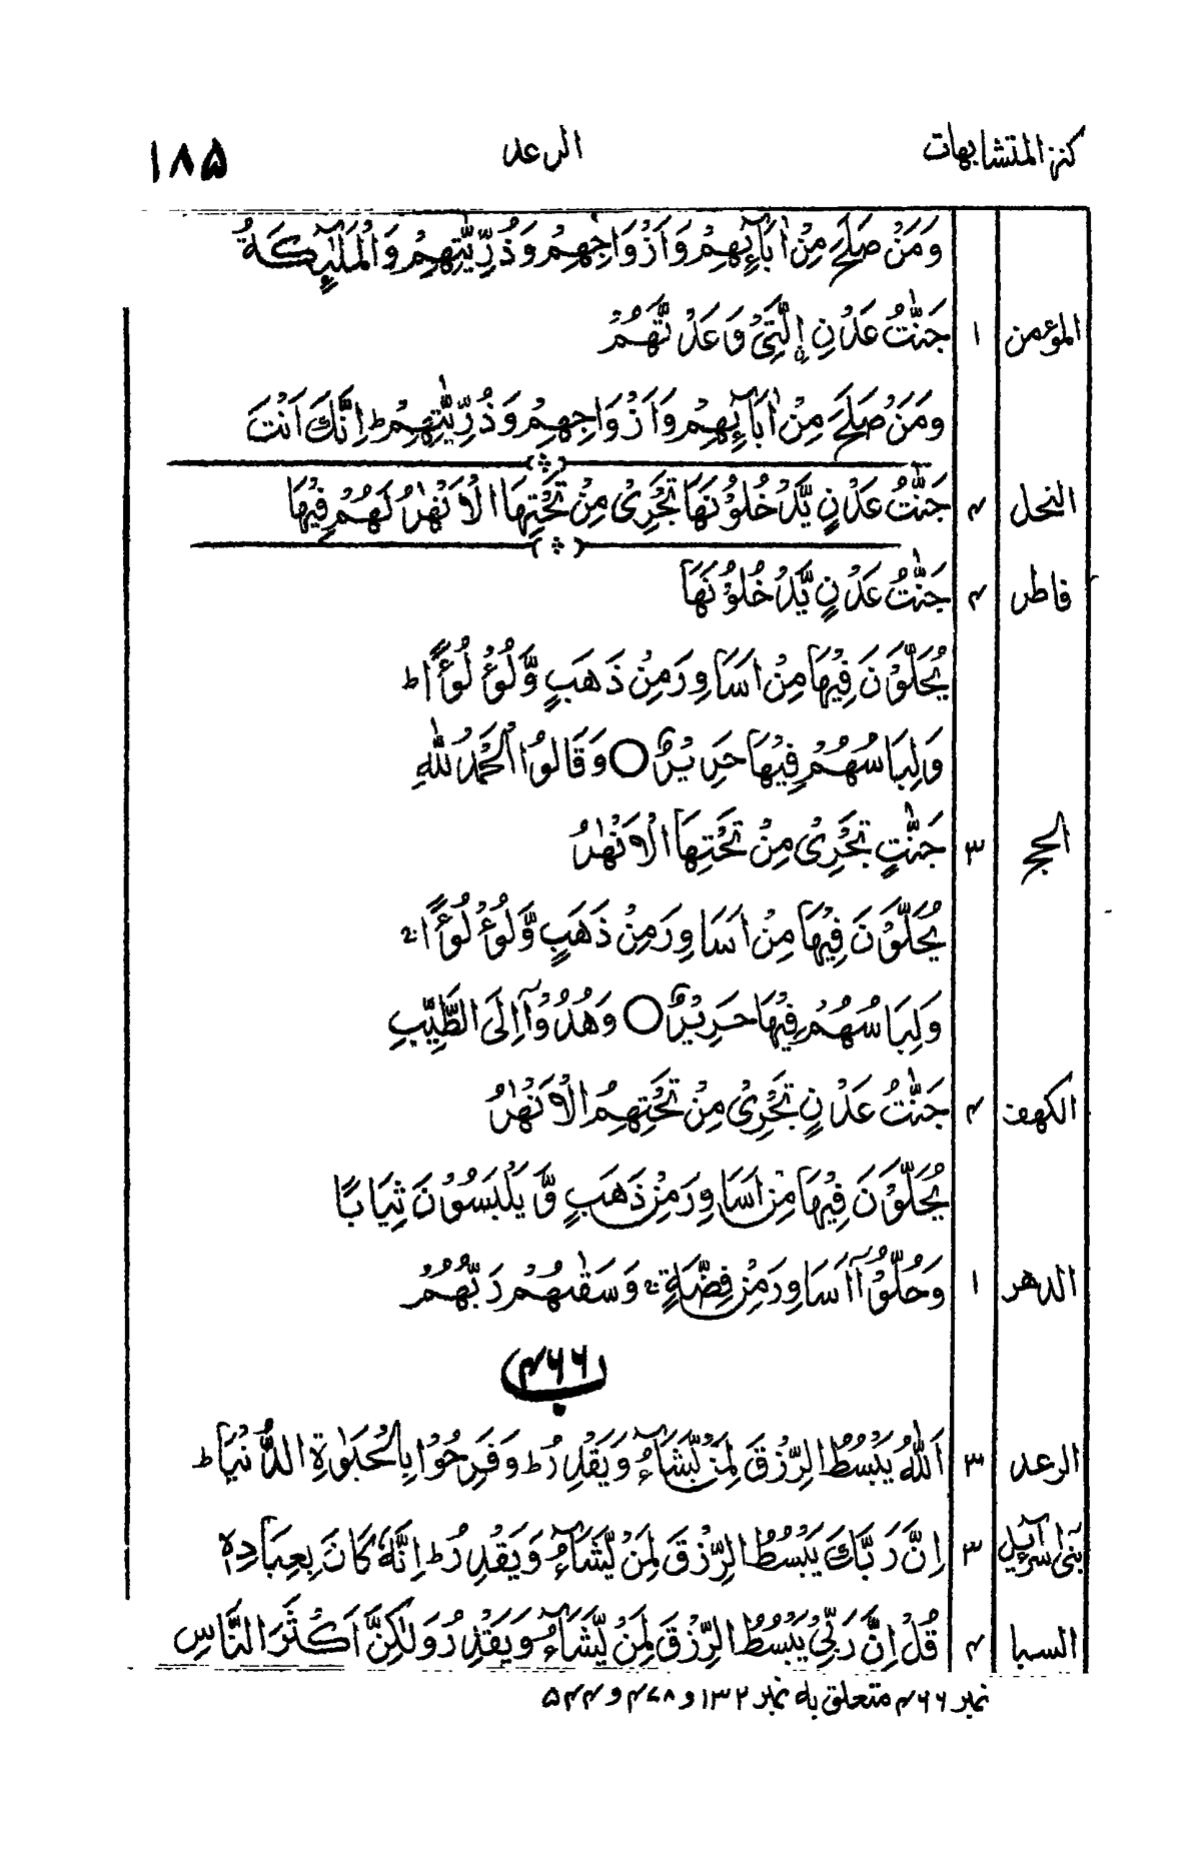 كنز المتشابهات الرعد ١٨۵
وَمَنْ صَلَحَ مِنْ اٰبَآئِهِمْ وَاَزْوَاجِهِمْ وَذُرِّيّٰتِهِمْ وَالْمَلٰٓئِكَةُ
المؤمن ١ جَنّٰتُ عَدْنِ ِالَّتِیْ وَعَدْتَّهُمْ
وَمَنْ صَلَحَ مِنْ اٰبَآئِهِمْ وَاَزْوَاجِهِمْ وَذُرِّيّٰتِهِمْ ط اِنَّكَ اَنْتَ
النحل ۴ جَنّٰتُ عَدْنٍ يَّدْخُلُوْنَهَا تَجْرِیْ مِنْ تَحْتِهَا الْاَنْهٰرُ لَهُمْ فِيْهَا
فاطر ۴ جَنّٰتُ عَدْنٍ يَّدْخُلُوْنَهَا
يُحَلَّوْنَ فِيْهَا مِنْ اَسَاوِرَ مِنْ ذَهَبٍ وَّلُؤْلُؤًا ط
وَلِبَاسُهُمْ فِيْهَا حَرِيْرٌ ○ وَقَالُوا الْحَمْدُ لِلّٰهِ
الحج ٣ جَنّٰتٍ تَجْرِیْ مِنْ تَحْتِهَا الْاَنْهٰرُ
يُحَلَّوْنَ فِيْهَا مِنْ اَسَاوِرَ مِنْ ذَهَبٍ وَّلُؤْلُؤًا
وَلِبَاسُهُمْ فِيْهَا حَرِيْرٌ ○ وَهُدُوْٓا اِلَى الطَّيِّبِ
الكهف ۴ جَنّٰتُ عَدْنٍ تَجْرِیْ مِنْ تَحْتِهِمُ الْاَنْهٰرُ
يُحَلَّوْنَ فِيْهَا مِنْ اَسَاوِرَ مِنْ ذَهَبٍ وَّيَلْبَسُوْنَ ثِيَابًا
الدهر ١ وَحُلُّوْٓا اَسَاوِرَ مِنْ فِضَّةٍ وَسَقٰىهُمْ رَبُّهُمْ
۴۶۶
الرعد ٣ اَللّٰهُ يَبْسُطُ الرِّزْقَ لِمَنْ يَّشَآءُ وَيَقْدِرُ ط وَفَرِحُوْا بِالْحَيٰوةِ الدُّنْيَا ط
بنی اسرآئیل ٣ اِنَّ رَبَّكَ يَبْسُطُ الرِّزْقَ لِمَنْ يَّشَآءُ وَيَقْدِرُ ط اِنَّهٗ كَانَ بِعِبَادِهٖ
السبا ۴ قُلْ اِنَّ رَبِّیْ يَبْسُطُ الرِّزْقَ لِمَنْ يَّشَآءُ وَيَقْدِرُ وَلٰكِنَّ اَكْثَرَ النَّاسِ
نمبر ۴۶۶ متعلق به نمبر ١٣٢ و